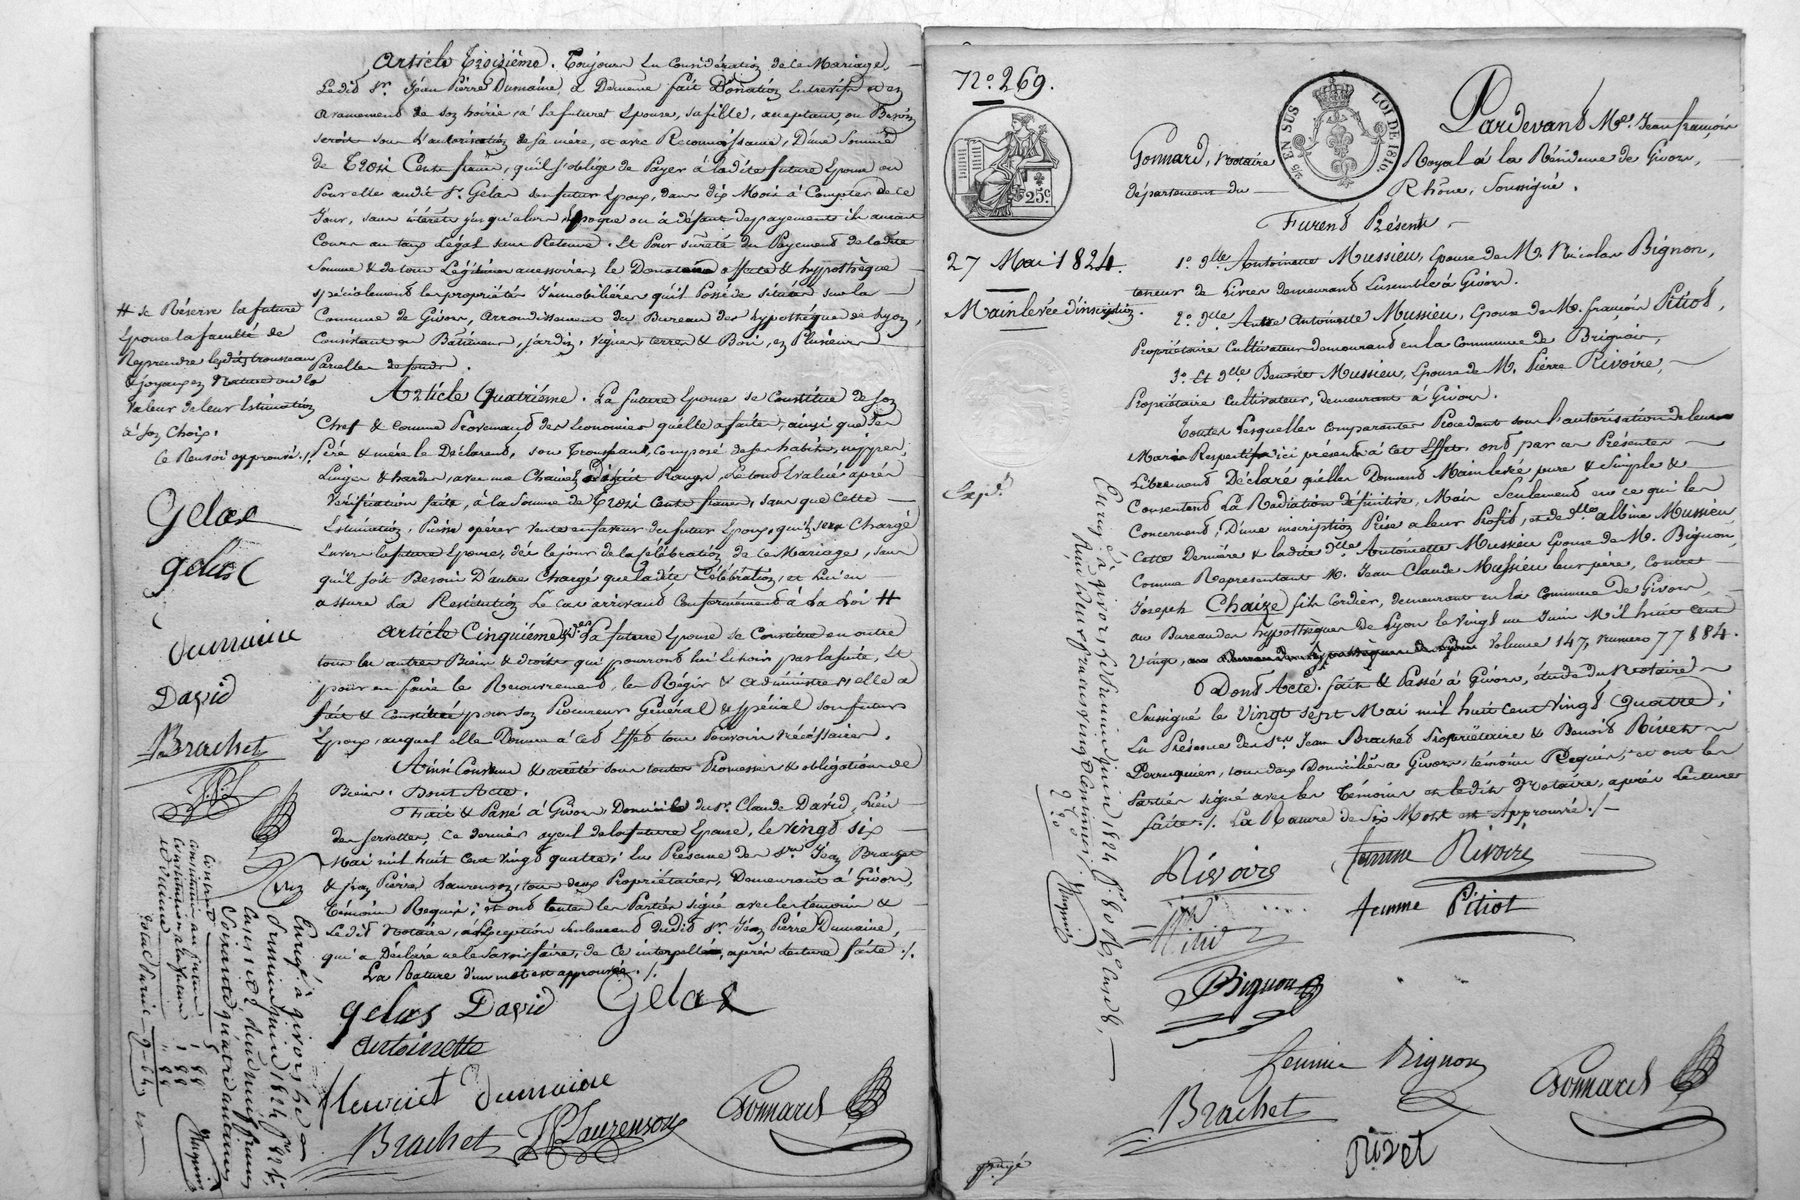 Article Troisième. Toujours en considération de ce Mariage,
Ledit Sr. Jean Pierre Dumaine, a Demeure fait Donation Entrevifs et en
avancement de son hoirie, à la future Epouse, sa fille, acceptant, au Besoin
seroit sous L'autorisation de sa mère, et avec Reconnoissance, D'une Somme
de Trois Cents francs, qu'il s'oblige de Payer à la dite future Epouse ou
Pour elle audit Sr. Gelas son futur Epoux, dans dix Mois à Compter de ce
Jour, sans intérêts jusqu'alors époque ou à défaut de payement ils auront
Cours au taux Légal sans Retenue. Et Pour sûreté du Payement de la dite
Somme & de tous Légitimes accessoires, le Donateur affecte & hypothèque
spécialement les propriétés Immobilières qu'il Possède situées sur la
Commune de Givors, arrondissement du Bureau des hypothèques de Lyon,
Consistant en Bâtiment, jardin, vignes, terres & Bois, en Plusieurs
Parcelles de fonds.
Article Quatrième. La future Epouse se Constitue de son
Chef & comme Provenant des Economies qu'elle a faites, ainsi que ses
Père & mère le Déclarent, son Trousseau, Composé de ses habits, nippes,
Linges & hardes, avec une Chaine Rouge, Le tout Evalué après
Vérification faite, à la Somme de Trois Cents francs, sans que Cette
Estimation, Puisse opérer vente en faveur du futur Epoux, qui sera Chargé
Envers la future Epouse, dès le jour de la célébration de ce Mariage, sans
qu'il soit Besoin D'autre Charge que la dite Célébration, et lui en
assure La Restitution Le cas arrivant Conformément à la Loi #
Article Cinquième & der. La future Epouse se Constitue en outre
tous les autres Biens & droits qui pourront lui Echoir par la suite, Et
pour en faire le Recouvrement, les Régir & administrer, elle a
fait & Constitué pour son Procureur Général & spécial son futur
Epoux, auquel elle Donne à cet Effet tous Pouvoirs nécessaires.
Ainsi Convenu & arrêté sous toutes Promesses & obligations de
Biens. Dont Acte.
Fait & Passé à Givors Domicile du Sr. Claude David, Lieu
des ferrettes, ce dernier ayeul de la future Epouse, le Vingt six
Mai mil huit Cent vingt quatre; En Présence des Srs. Jean Brachet
& Jean Pierre Laurenson, tous deux Propriétaires, Demeurant à Givors,
témoins Requis; et ont toutes les Parties signé avec les témoins &
Ledit Notaire, à l'exception seulement dudit Sr. Jean Pierre Dumaine,
qui a Déclaré ne le Savoir faire, de ce interpellé, après lecture faite ./.
La Rature d'un mot est approuvée ./.
gelas David Gelas
antoinette
fleuriet Dumaine
Brachet JP Laurenson Gonnard
# se Réserve la future
Epouse la faculté de
Reprendre les dits trousseau
& joyaux en Nature ou la
Valeur de leur Estimation
à son Choix.
Ce Renvoi approuvé ./.
Gelas
gelas C
Dumaine
David
Brachet
J.P.L
Enregé à givors le
deux juin 1824, fo.
Soixante quatre centimes
9-64
N°. 269.
25c
27 Mai 1824.
Mainlevée d'inscription.
Expd.
EN SUS
LOI DE 1816
Pardevant Me. Jean françois
Gonnard, Notaire Royal à la Résidence de Givors,
département du Rhône, Soussigné.
Furent Présents
1°. dlle Antoinette Mussieu, Epouse de M. Nicolas Bignon,
teneur de Livres demeurant Ensemble à Givors.
2°. dlle Autre Antoinette Mussieu, Epouse de M. françois Pitiot,
Propriétaire Cultivateur demeurant en la Commune de Brignais,
3°. Et dlle Benoite Mussieu, Epouse de M. Pierre Rivoire,
Propriétaire Cultivateur, demeurant à Givors.
Toutes Lesquelles comparantes Procédant sous l'autorisation de leurs
Maris Respectifs ici présents à cet Effet, ont par ces Présentes
Librement Déclaré qu'elles Donnent Mainlevée pure & simple &
Consentent La Radiation définitive, Mais Seulement en ce qui les
Concernent, D'une inscription Prise à leur Profit, et de dlle albine Mussieu
Cette Dernière & ladite dlle Antoinette Mussieu Epouse de M. Bignon,
Comme Représentant M. Jean Claude Mussieu leur père, Contre
Joseph Chaize fils Cordier, demeurant en la Commune de Givors,
au Bureau des hypothèques de Lyon le vingt un Juin Mil huit cent
Vingt, au Bureau des hypothèques de Lyon Volume 147, Numéro 77184.
Dont Acte. fait & Passé à Givors, étude du Notaire
Soussigné le Vingt sept Mai mil huit cent vingt Quatre;
En Présence des Srs. Jean Brachet Propriétaire & Benoit Rivet
Perruquier, tous deux Domiciliés à Givors, témoins Requis, et ont les
Parties signé avec les témoins et ledit Notaire, après Lecture
faite ./. La Rature de Six Mots est Approuvée ./.
Rivoire femme Rivoire
Pitiot femme Pitiot
Bignon
femme Bignon
Brachet Gonnard
Rivet
Enregé à givors, le deux juin 1824